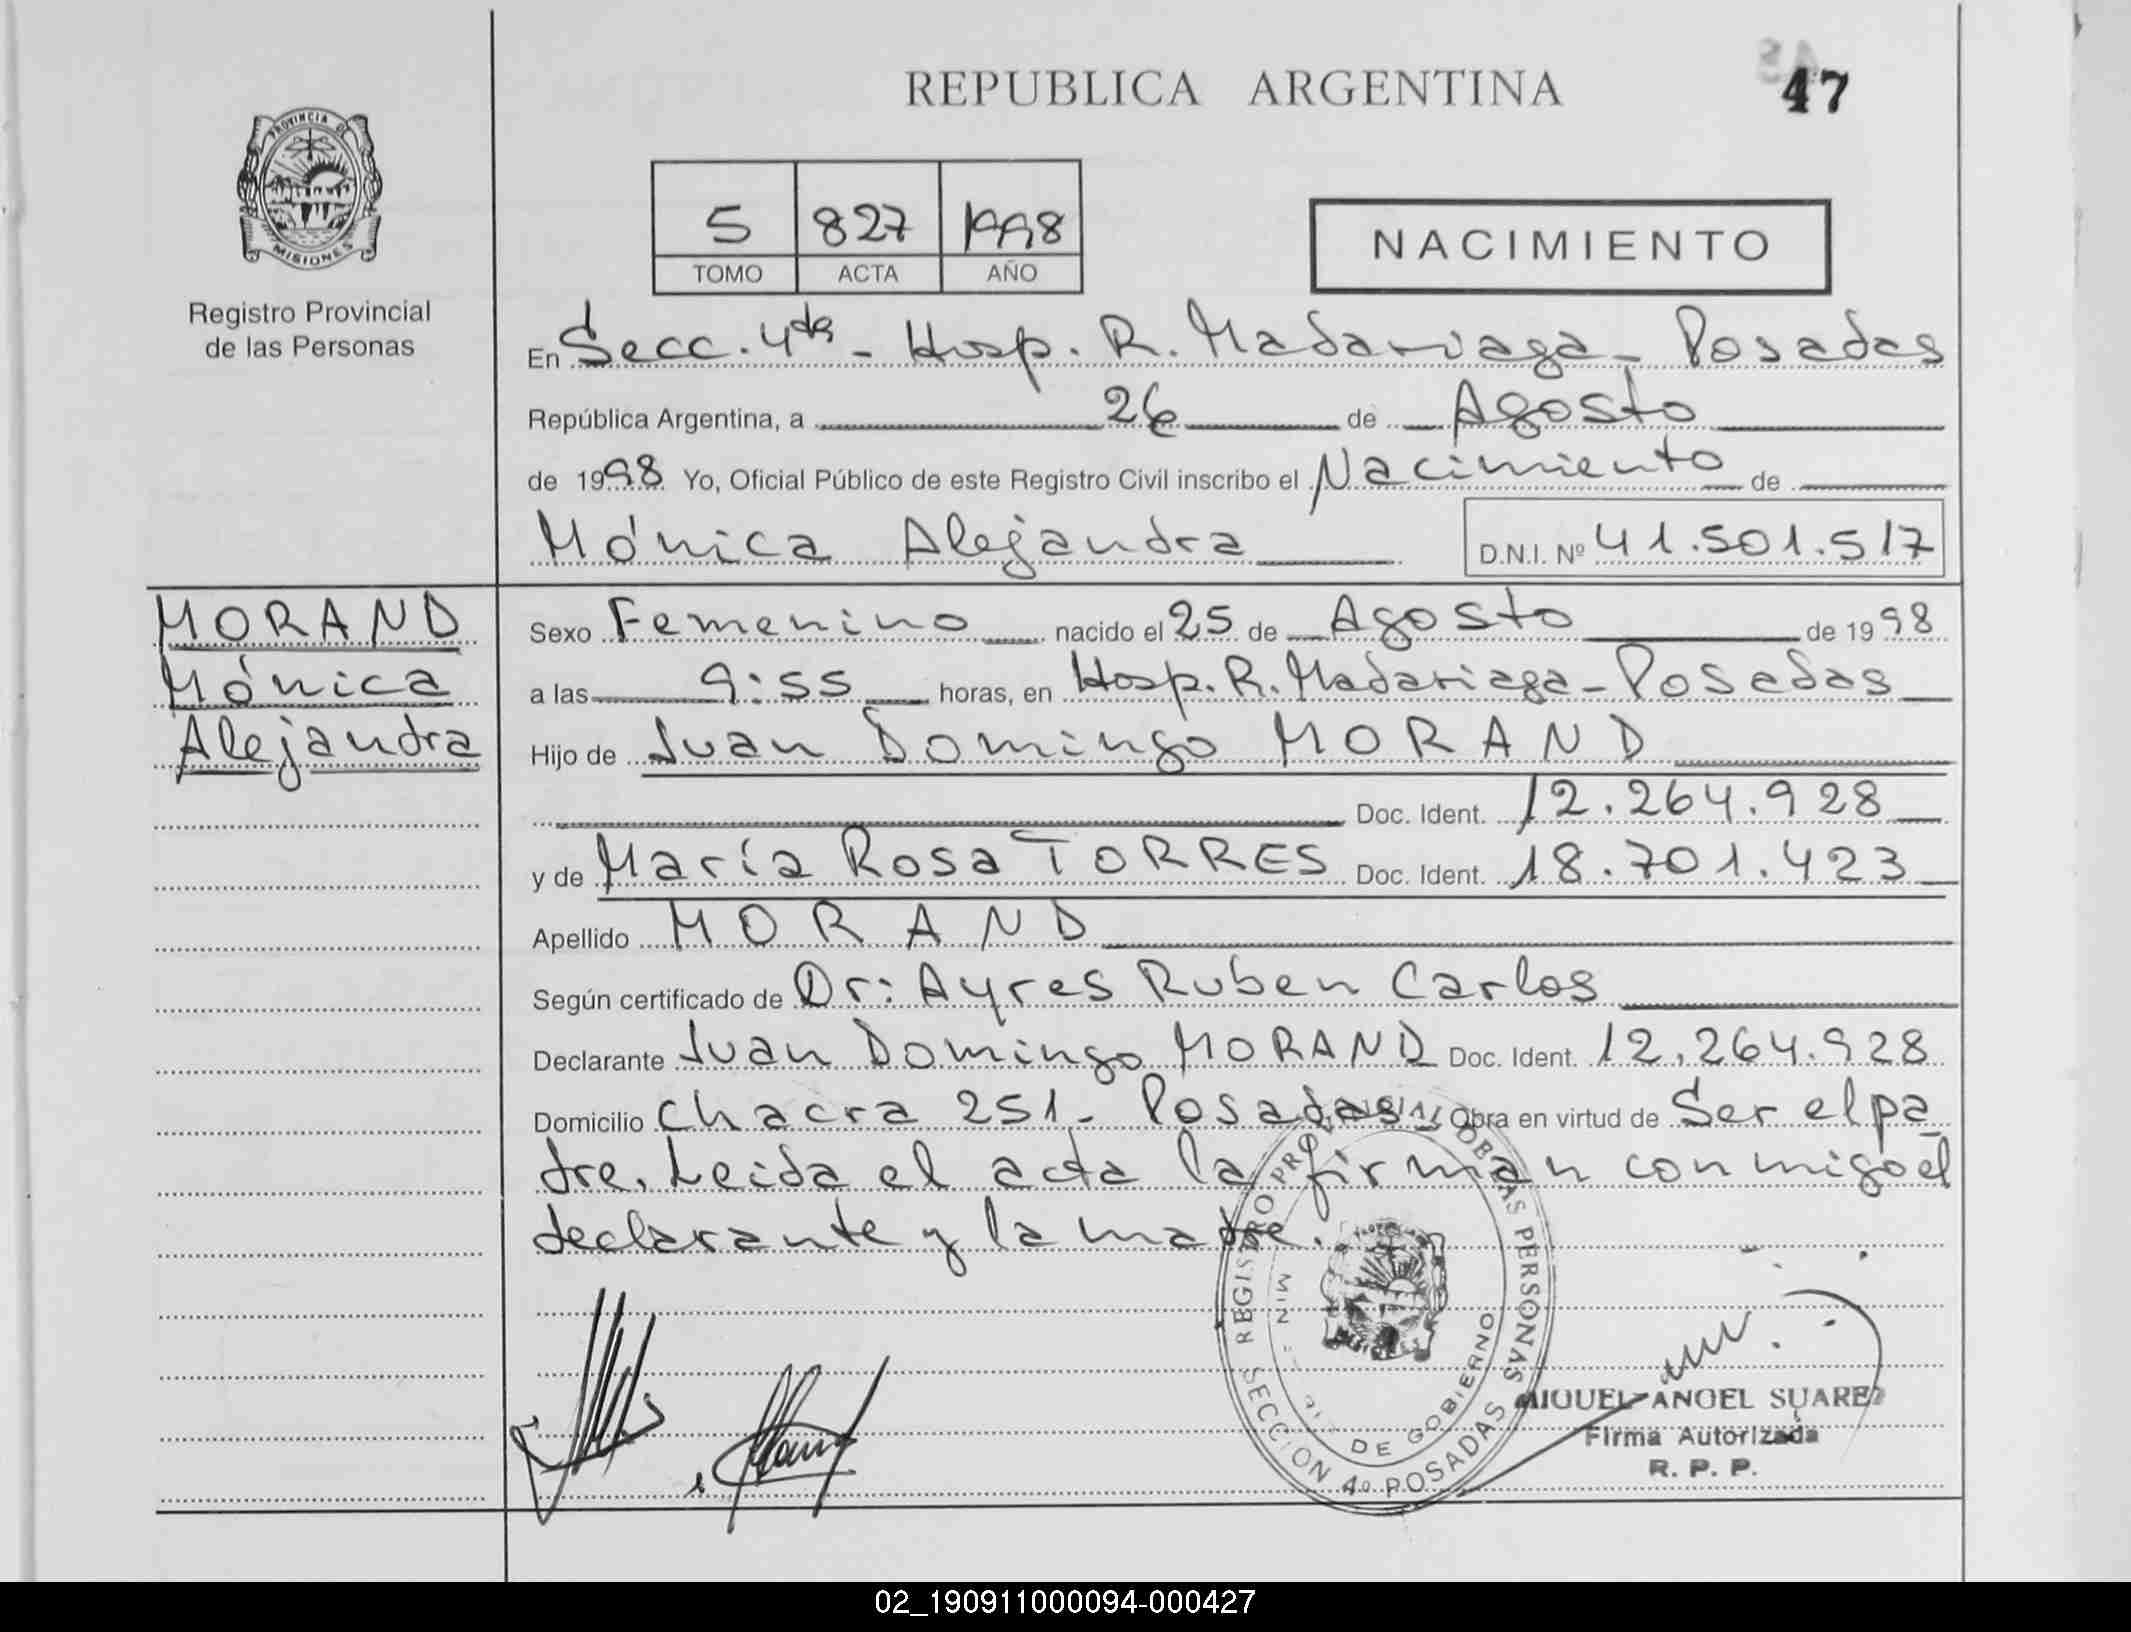 REPUBLICA ARGENTINA
47
PROVINCIA DE
MISIONES
Registro Provincial
de las Personas
5 827 1998
TOMO ACTA AÑO
NACIMIENTO
En Secc. 4ta - Hosp. R. Madariaga - Posadas
República Argentina, a 26 de Agosto
de 1998 Yo, Oficial Público de este Registro Civil inscribo el Nacimiento de
Mónica Alejandra D.N.I. Nº 41.501.517
MORAND
Mónica
Alejandra
Sexo Femenino nacido el 25 de Agosto de 1998
a las 9:55 horas, en Hosp. R. Madariaga - Posadas
Hijo de Juan Domingo MORAND
Doc. Ident. 12.264.928
y de María Rosa TORRES Doc. Ident. 18.701.423
Apellido MORAND
Según certificado de Dr: Ayres Ruben Carlos
Declarante Juan Domingo MORAND Doc. Ident. 12.264.928
Domicilio Chacra 251 - Posadas Obra en virtud de Ser el pa
dre. Leida el acta la firman conmigo el
declarante y la madre.
REGISTRO PROVINCIAL DE LAS PERSONAS
SECCION 4º POSADAS
DE GOBIERNO
MIGUEL ANGEL SUAREZ
Firma Autorizada
R. P. P.
02_190911000094-000427